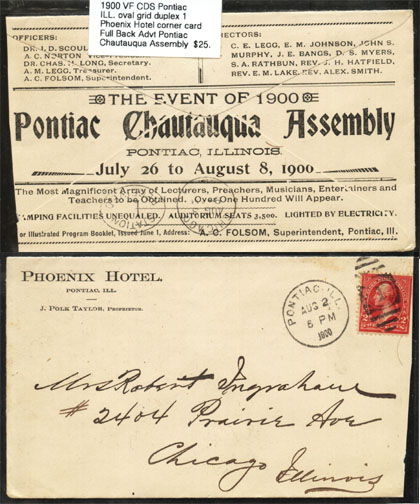 1900 VF CDS Pontiac
ILL. oval grid duplex 1
Phoenix Hotel corner card
Full Back Advt Pontiac
Chautauqua Assembly $25.
OFFICERS:
DR. I. D. SCOUL
A. C. NORTON VI
DR. CHAS. M. LONG, Secretary.
A. M. LEGG, Treasurer.
A. C. FOLSOM, Superintendent.
DIRECTORS:
C. E. LEGG, E. M. JOHNSON, JOHN S.
MURPHY, J. E. BANGS, D. S. MYERS,
S. A. RATHBUN, REV. J. H. HATFIELD,
REV. E. M. LAKE, REV. ALEX. SMITH.
THE EVENT OF 1900
Pontiac Chautauqua Assembly
PONTIAC, ILLINOIS.
July 26 to August 8, 1900
The Most Magnificent Array of Lecturers, Preachers, Musicians, Entertainers and
Teachers to be Obtained. Over One Hundred Will Appear.
MPING FACILITIES UNEQUALED. AUDITORIUM SEATS 3,500. LIGHTED BY ELECTRICITY.
or Illustrated Program Booklet, Issued June 1, Address: A. C. FOLSOM, Superintendent, Pontiac, Ill.
PHOENIX HOTEL.
PONTIAC, ILL.
J. POLK TAYLOR, PROPRIETOR.
PONTIAC, ILL.
AUG 2
6 PM
1900
Mrs Robert Ingraham
# 2404 Prairie Ave
Chicago
Illinois